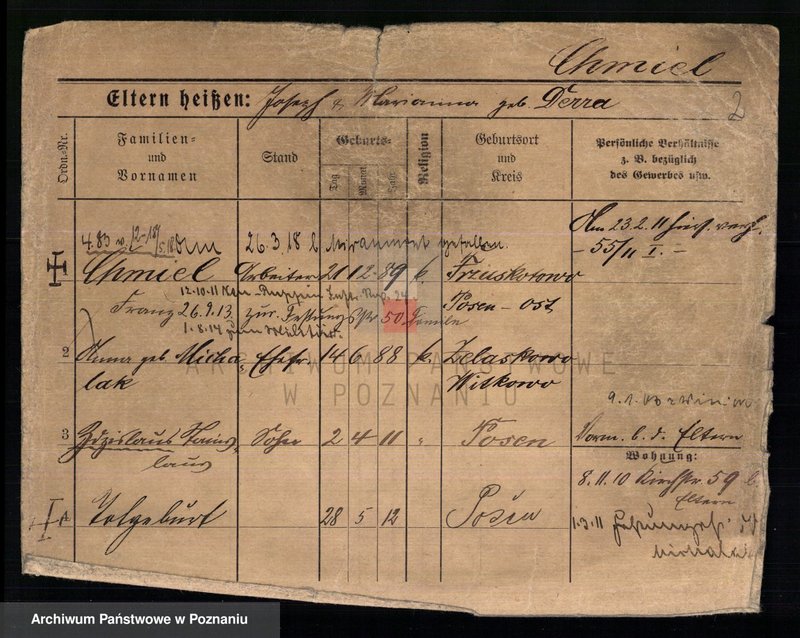 Chmiel
Eltern heißen: Joseph & Marianna geb. Derra
2
Ordn.-Nr.
Familien- und Vornamen
Stand
Geburts-
Tag
Monat
Jahr
Religion
Geburtsort und Kreis
Persönliche Verhältnisse z. B. bezüglich des Gewerbes usw.
Am 23.2.11
55/11 I. -
26.3.18 b. Miraumont gefallen.
Chmiel Arbeiter 21 12 89 k. Trzuskotowo
12.10.11
Franz 26.9.13 zur 50 Posen - Ost
1.8.14 zum Militär.
2 Anna geb. Micha- Ehefr. 14 6 88 k. Zelaskowo
lak Witkowo
3 Zdzislaus Stanis- Sohn 2 4 11 " Posen
laus
Vorm. b. d. Eltern
Wohnung:
8.11.10 Kirchstr. 59 b.
Eltern
4 Totgeburt 28 5 12 Posen
1.3.11
ARCHIWUM PAŃSTWOWE
W POZNANIU
Archiwum Państwowe w Poznaniu